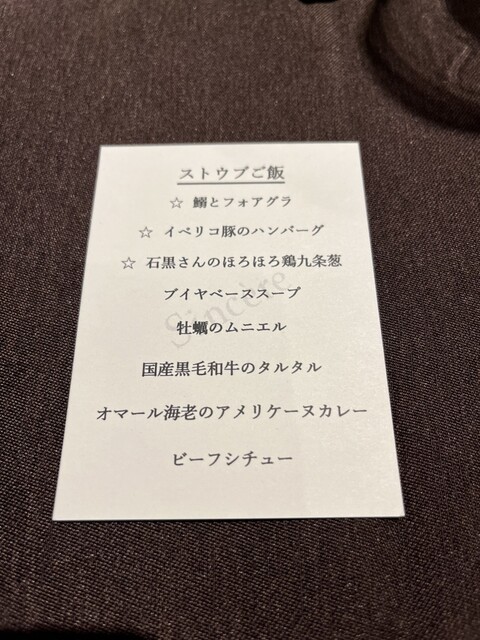 ストウブご飯
☆ 鰯とフォアグラ
☆ イベリコ豚のハンバーグ
☆ 石黒さんのほろほろ鶏九条葱
ブイヤベーススープ
牡蠣のムニエル
国産黒毛和牛のタルタル
オマール海老のアメリケーヌカレー
ビーフシチュー
Sincère